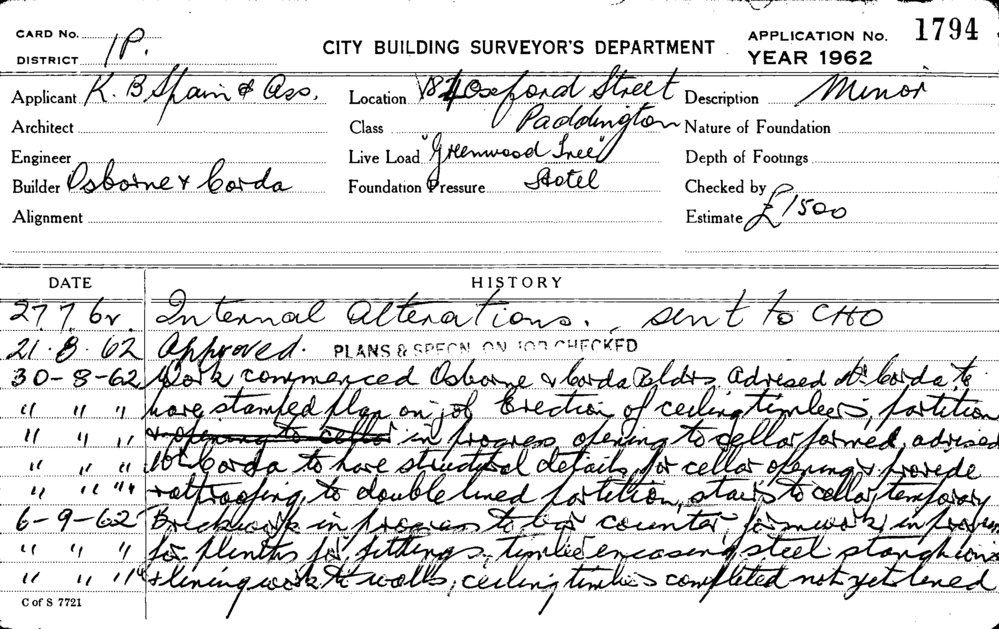 CARD No. CITY BUILDING SURVEYOR'S DEPARTMENT APPLICATION No. 1794
DISTRICT 1P. YEAR 1962
Applicant K. B Spain & Ass. Location Oxford Street Description Minor
Architect Class Paddington Nature of Foundation
Engineer Live Load "Greenwood Tree" Depth of Footings
Builder Osborne & Corda Foundation Pressure Hotel Checked by
Alignment Estimate £1500
DATE HISTORY
27 7 62. Internal Alterations. sent to CHO
21. 8. 62 Approved. PLANS & SPECN. ON JOB CHECKED
30-8-62 Work commenced Osborne & Corda Bldrs. Advised Mr Corda to
" " " have stamped plan on job Erection of ceiling timbers, partition
" " " & opening to cellar in progress, opening to cellar formed, advised
" " " Mr Corda to have structural details for cellar opening & provide
" " " ratproofing to double lined partition, stairs to cellar, temporary
6-9-62 Brickwork in progress to bar counter, formwork in progress
" " " for plinths for fittings, timber encasing steel stanchions
" " " & lining work to walls, ceiling timbers completed not yet lined
C of S 7721